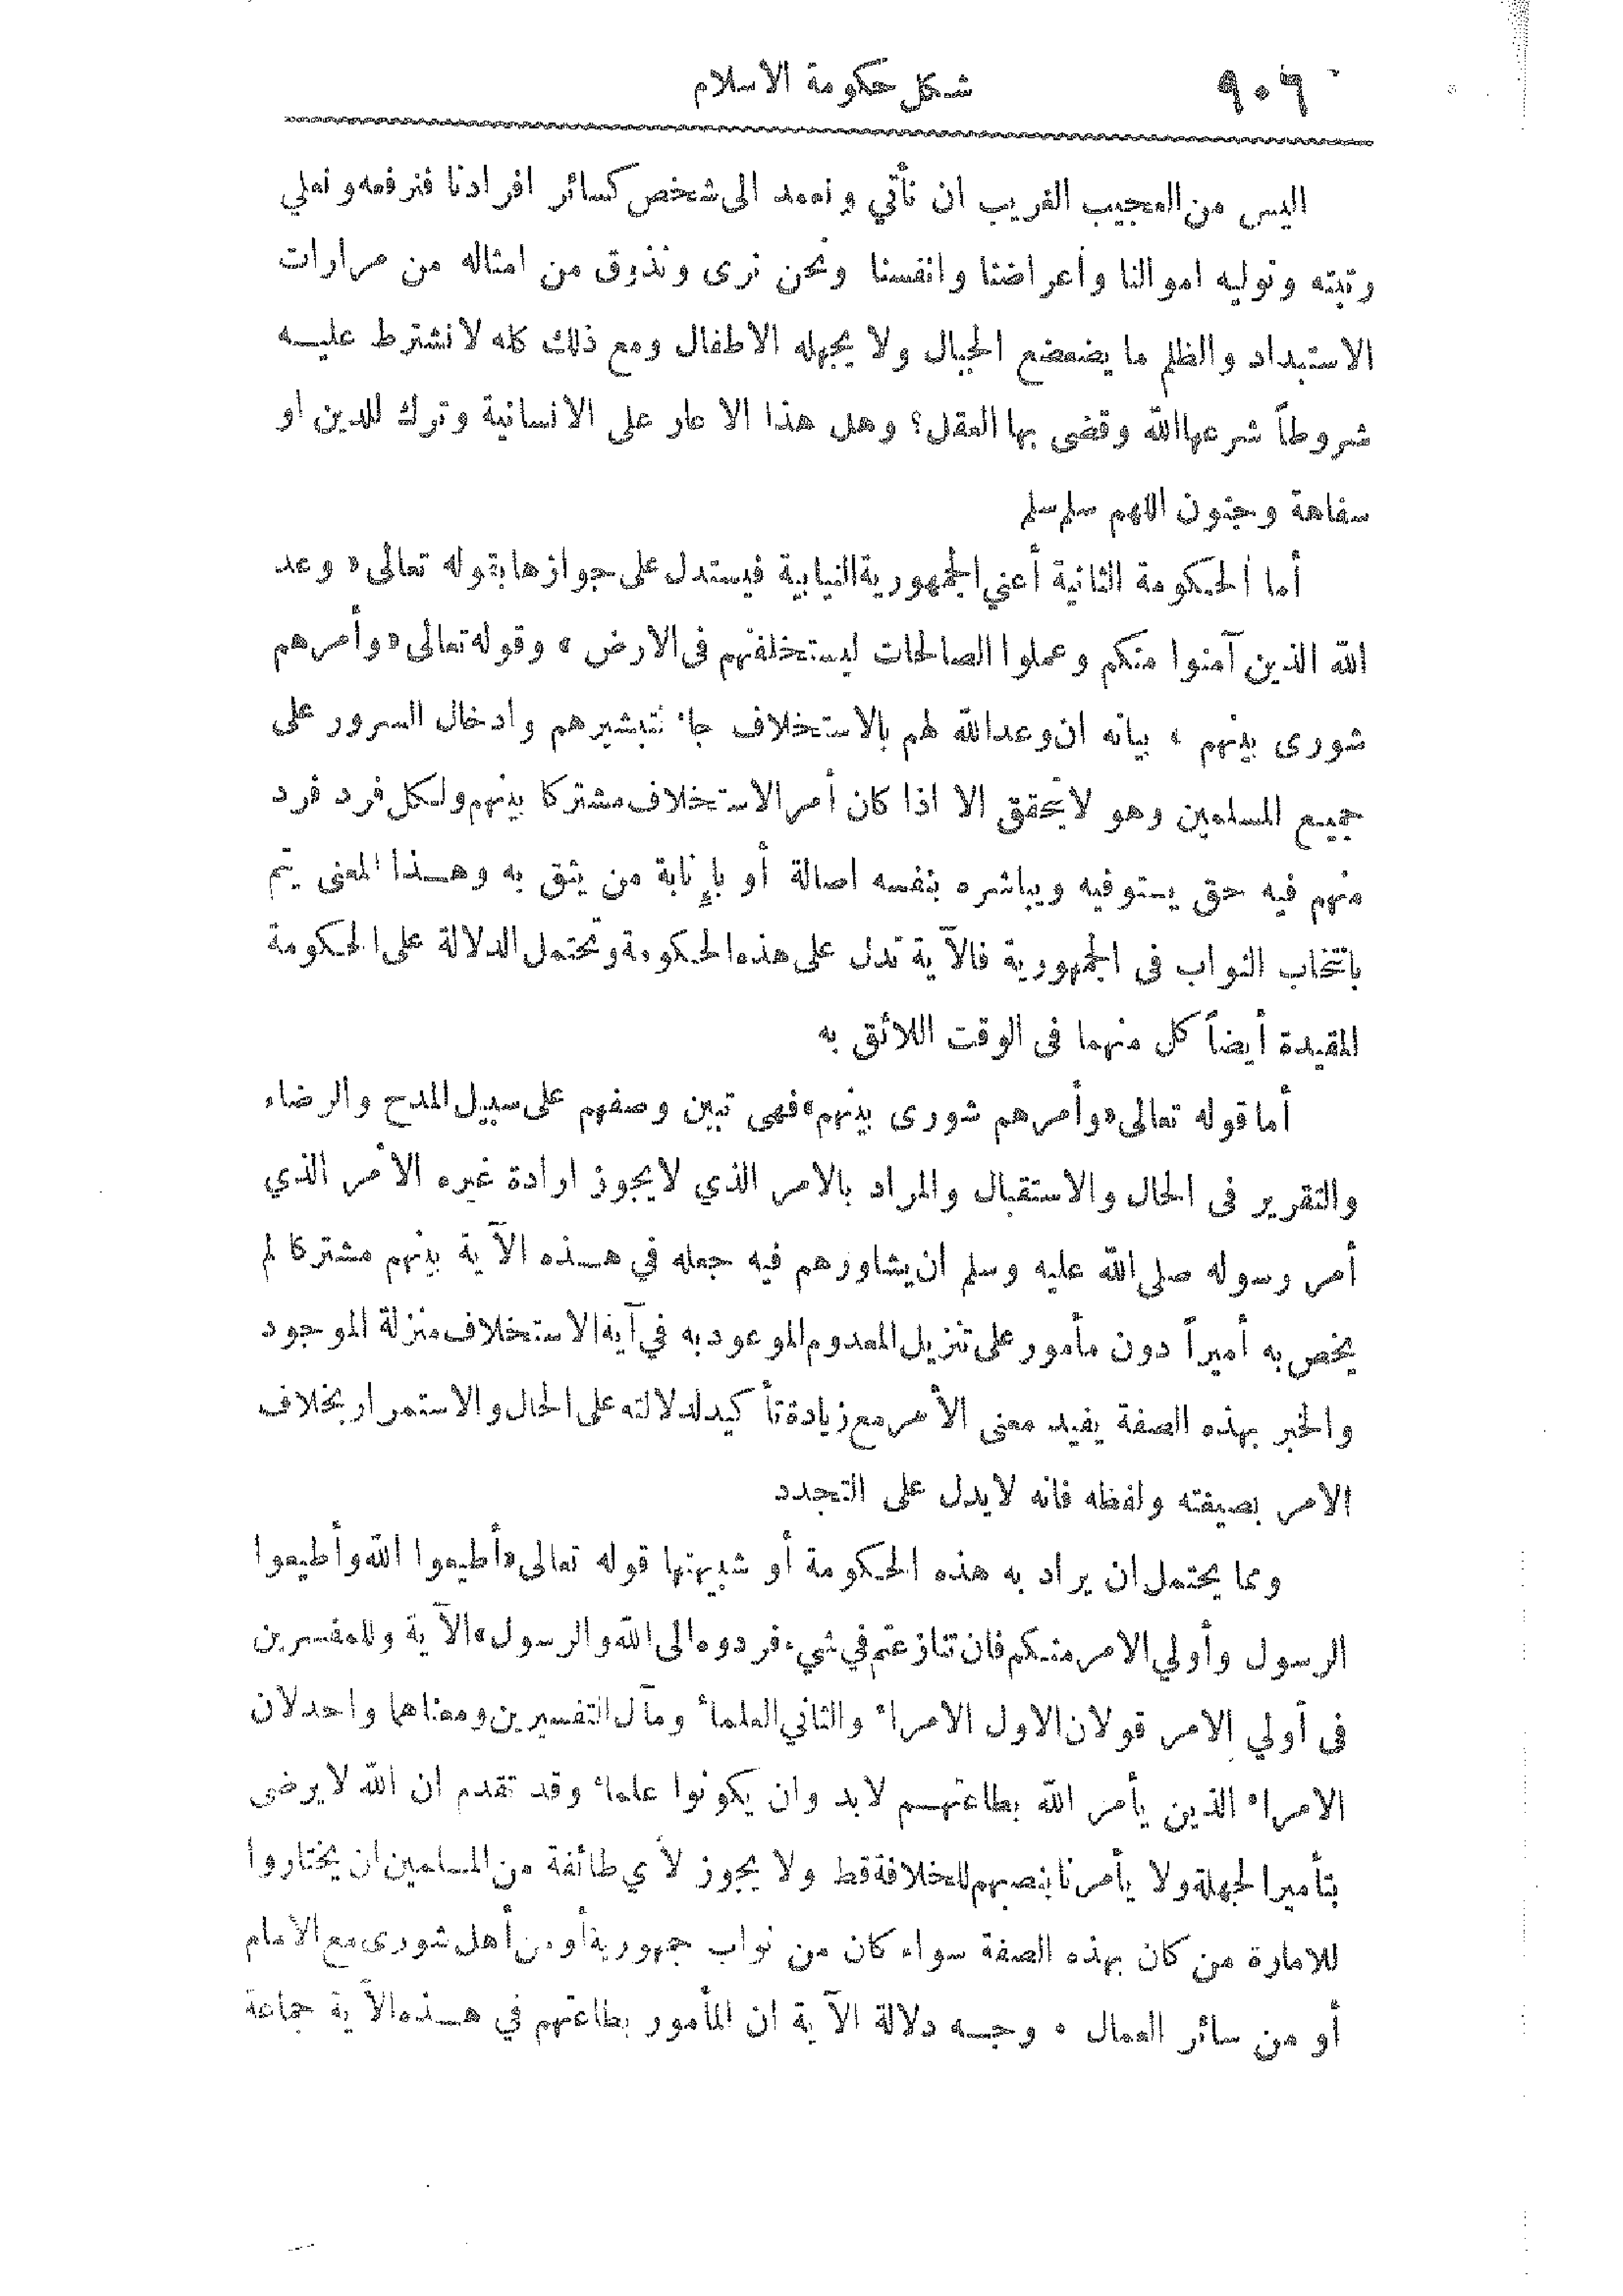 ٩٠٦
شكل حكومة الاسلام
اليس من العجيب الغريب ان نأتي ونعمد الى شخص كسائر افرادنا فنرفعه ونعلي
رتبته ونوليه اموالنا وأعراضنا وانفسنا ونحن نرى ونذوق من امثاله من مرارات
الاستبداد والظلم ما يضعضع الجبال ولا يجهله الاطفال ومع ذلك كله لا نشترط عليه
شروطاً شرعها الله وقضى بها العقل؟ وهل هذا الا عار على الانسانية وترك للدين او
سفاهة وجنون اللهم سلم سلم
أما الحكومة الثانية أعني الجمهورية النيابية فيستدل على جوازها بقوله تعالى «وعد
الله الذين آمنوا منكم وعملوا الصالحات ليستخلفنهم فى الارض» وقوله تعالى «وأمرهم
شورى بينهم» بيانه ان وعد الله لهم بالاستخلاف جاء لتبشيرهم وادخال السرور على
جميع المسلمين وهو لا يتحقق الا اذا كان أمر الاستخلاف مشتركا بينهم ولكل فرد فرد
منهم فيه حق يستوفيه ويباشره بنفسه اصالة أو بإنابة من يثق به وهذا المعنى يتم
بانتخاب النواب فى الجمهورية فالآية تدل على هذه الحكومة وتحتمل الدلالة على الحكومة
المقيدة أيضاً كل منهما فى الوقت اللائق به
أما قوله تعالى «وأمرهم شورى بينهم» فهى تبين وصفهم على سبيل المدح والرضاء
والتقرير فى الحال والاستقبال والمراد بالامر الذي لا يجوز ارادة غيره الأمر الذي
أمر رسوله صلى الله عليه وسلم ان يشاورهم فيه جعله في هذه الآية بينهم مشتركا لم
يخص به أميراً دون مأمور على تنزيل المعدوم الموعود به في آية الاستخلاف منزلة الموجود
والخبر بهذه الصفة يفيد معنى الأمر مع زيادة تأكيد لدلالته على الحال والاستمرار بخلاف
الامر بصيغته ولفظه فانه لا يدل على التجدد
ومما يحتمل ان يراد به هذه الحكومة أو شبيهتها قوله تعالى «أطيعوا الله وأطيعوا
الرسول وأولي الامر منكم فان تنازعتم في شيء فردوه الى الله والرسول» الآية وللمفسرين
فى أولي الامر قولان الاول الامراء والثاني العلماء ومآل التفسيرين ومعناهما واحد لان
الامراء الذين يأمر الله بطاعتهم لا بد وان يكونوا علماء وقد تقدم ان الله لا يرضى
بتأمير الجهلة ولا يأمرنا بنصبهم للخلافة قط ولا يجوز لأي طائفة من المسلمين ان يختاروا
للامارة من كان بهذه الصفة سواء كان من نواب جمهورية أو من أهل شورى مع الامام
أو من سائر العمال • وجه دلالة الآية ان المأمور بطاعتهم في هذه الآية جماعة